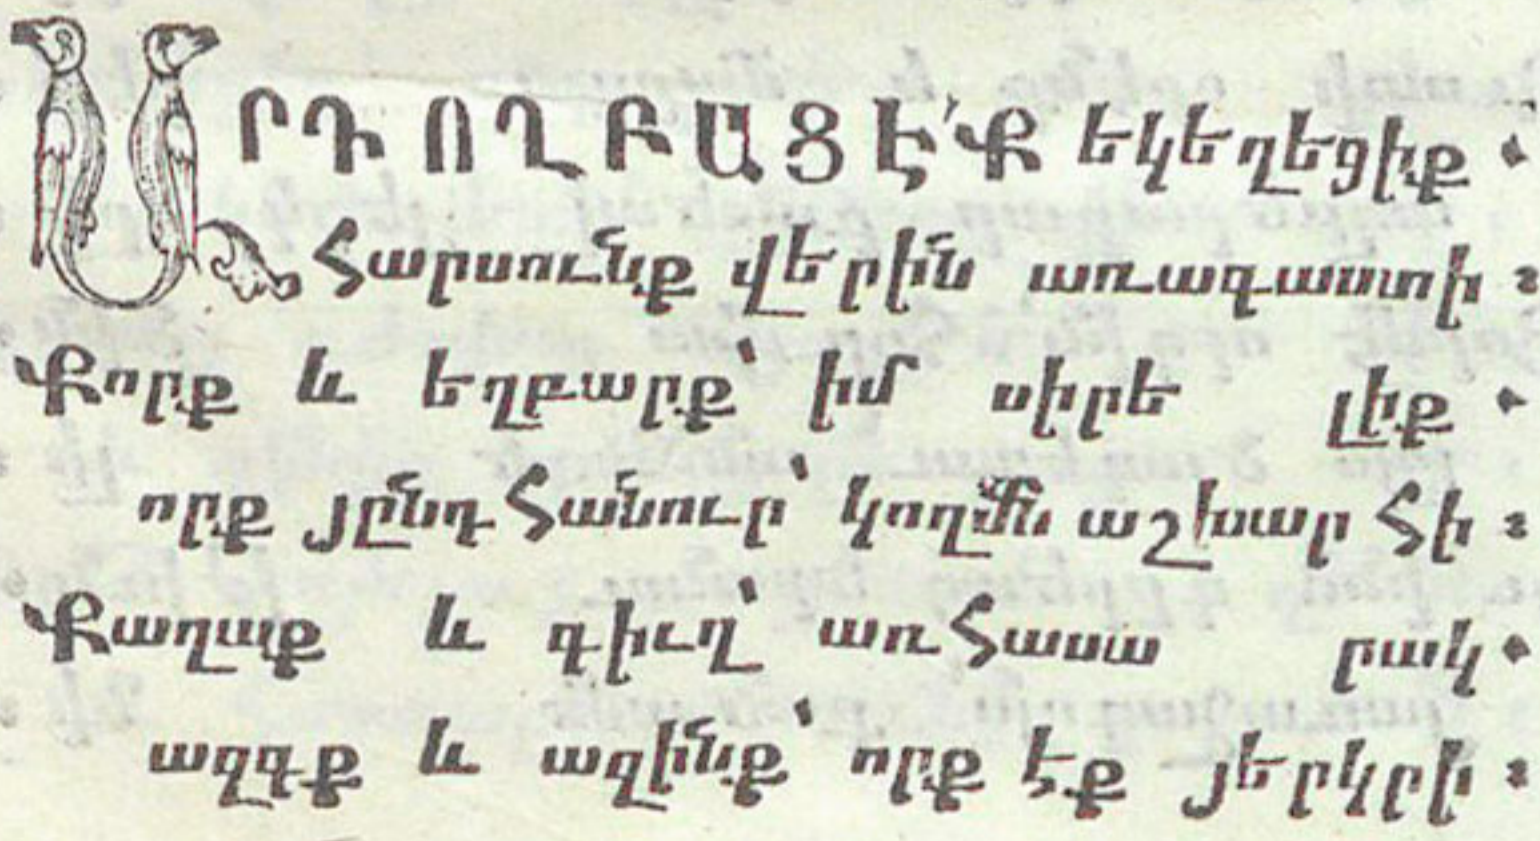 ԱՐԴ ՈՂԲԱՑԷ՛Ք եկեղեցիք .
Հարսունք վերին առագաստի ։
Քորք և եղբարք՝ իմ սիրե լիք .
որք յընդհանուր՝ կողմն աշխարհի ։
Քաղաք և գիւղ՝ առհասա րակ .
ազգք և ազինք՝ որք էք յերկրի ։